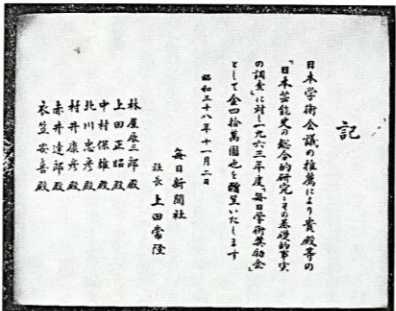 記
日本学術会議の推薦により貴殿等の
「日本芸能史の総合的研究―その基礎的事実
の調査」に対し一九六三年度「毎日学術奨励金」
として金四拾萬圓也を贈呈いたします
昭和三十八年十一月二日
毎日新聞社
社長 上田常隆
林屋辰三郎殿
上田正昭殿
中村保雄殿
北川忠彦殿
村井康彦殿
赤井達郎殿
衣笠安喜殿